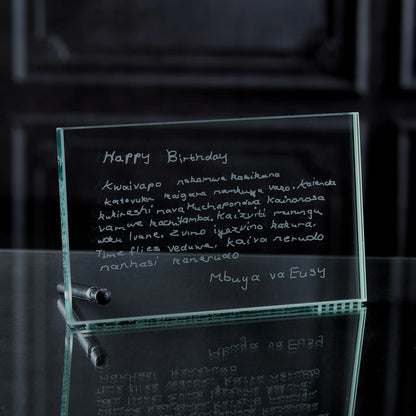 Happy Birthday
Kwaivapo nehamwe kasikana
katevuku kaigara nambuya vako. Kaienda
kukireshi nava Kuchapondwa kainonosa
vamwe kachitamba. Kaizviti murungu
woku Ivane. Zvino iyezvino kakura.
Time flies veduwe. Kaiva nerudo
nanhasi kanerudo
Mbuya va Eusy